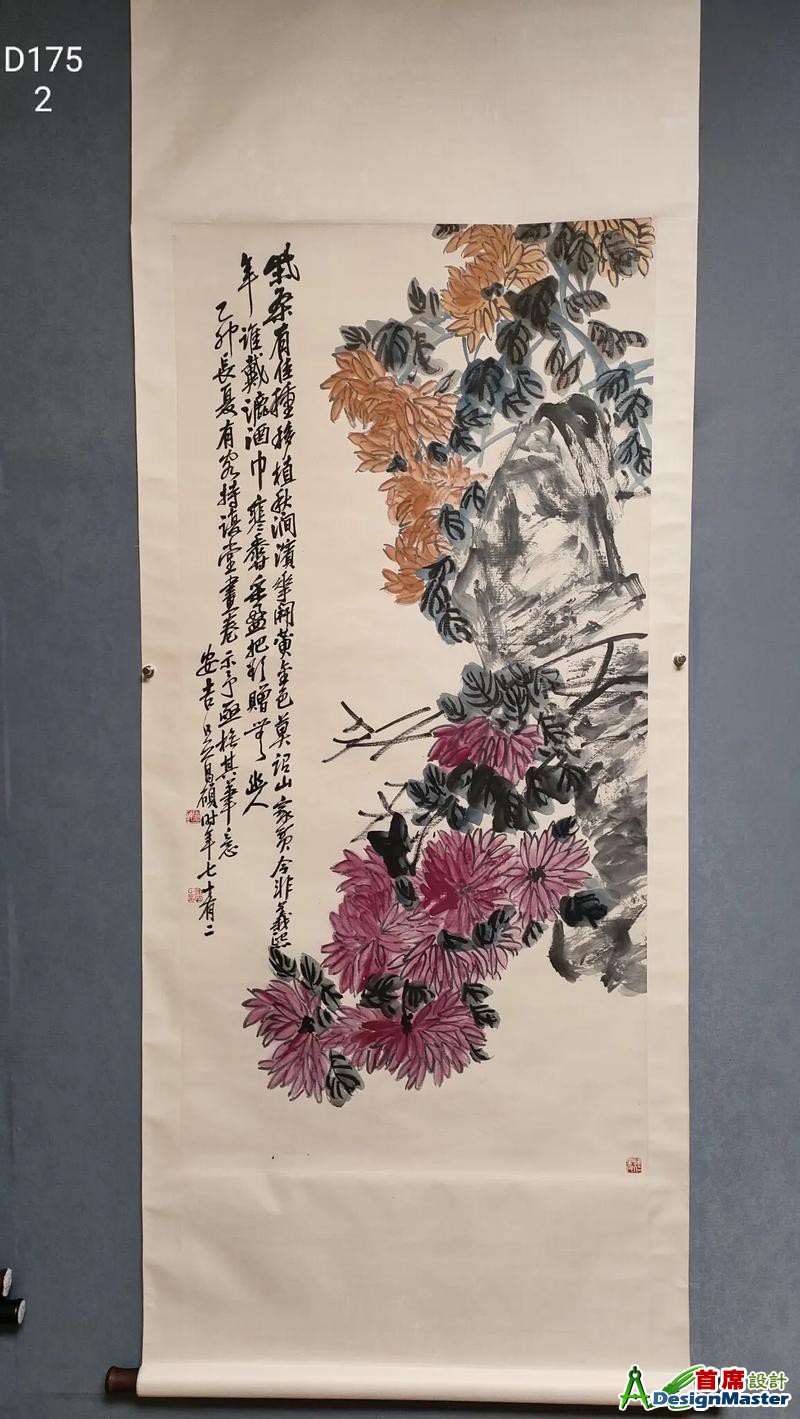 D175
2
柴桑有佳種移植秋澗濱華開黄金色莫詔山家貧今非義熙
年誰戴漉酒巾寒香采盈把贈無幽人
乙卯長夏有客持復堂畫卷示予亟橅其筆意
安吉吳昌碩時年七十有二
首席設計
ADesignMaster